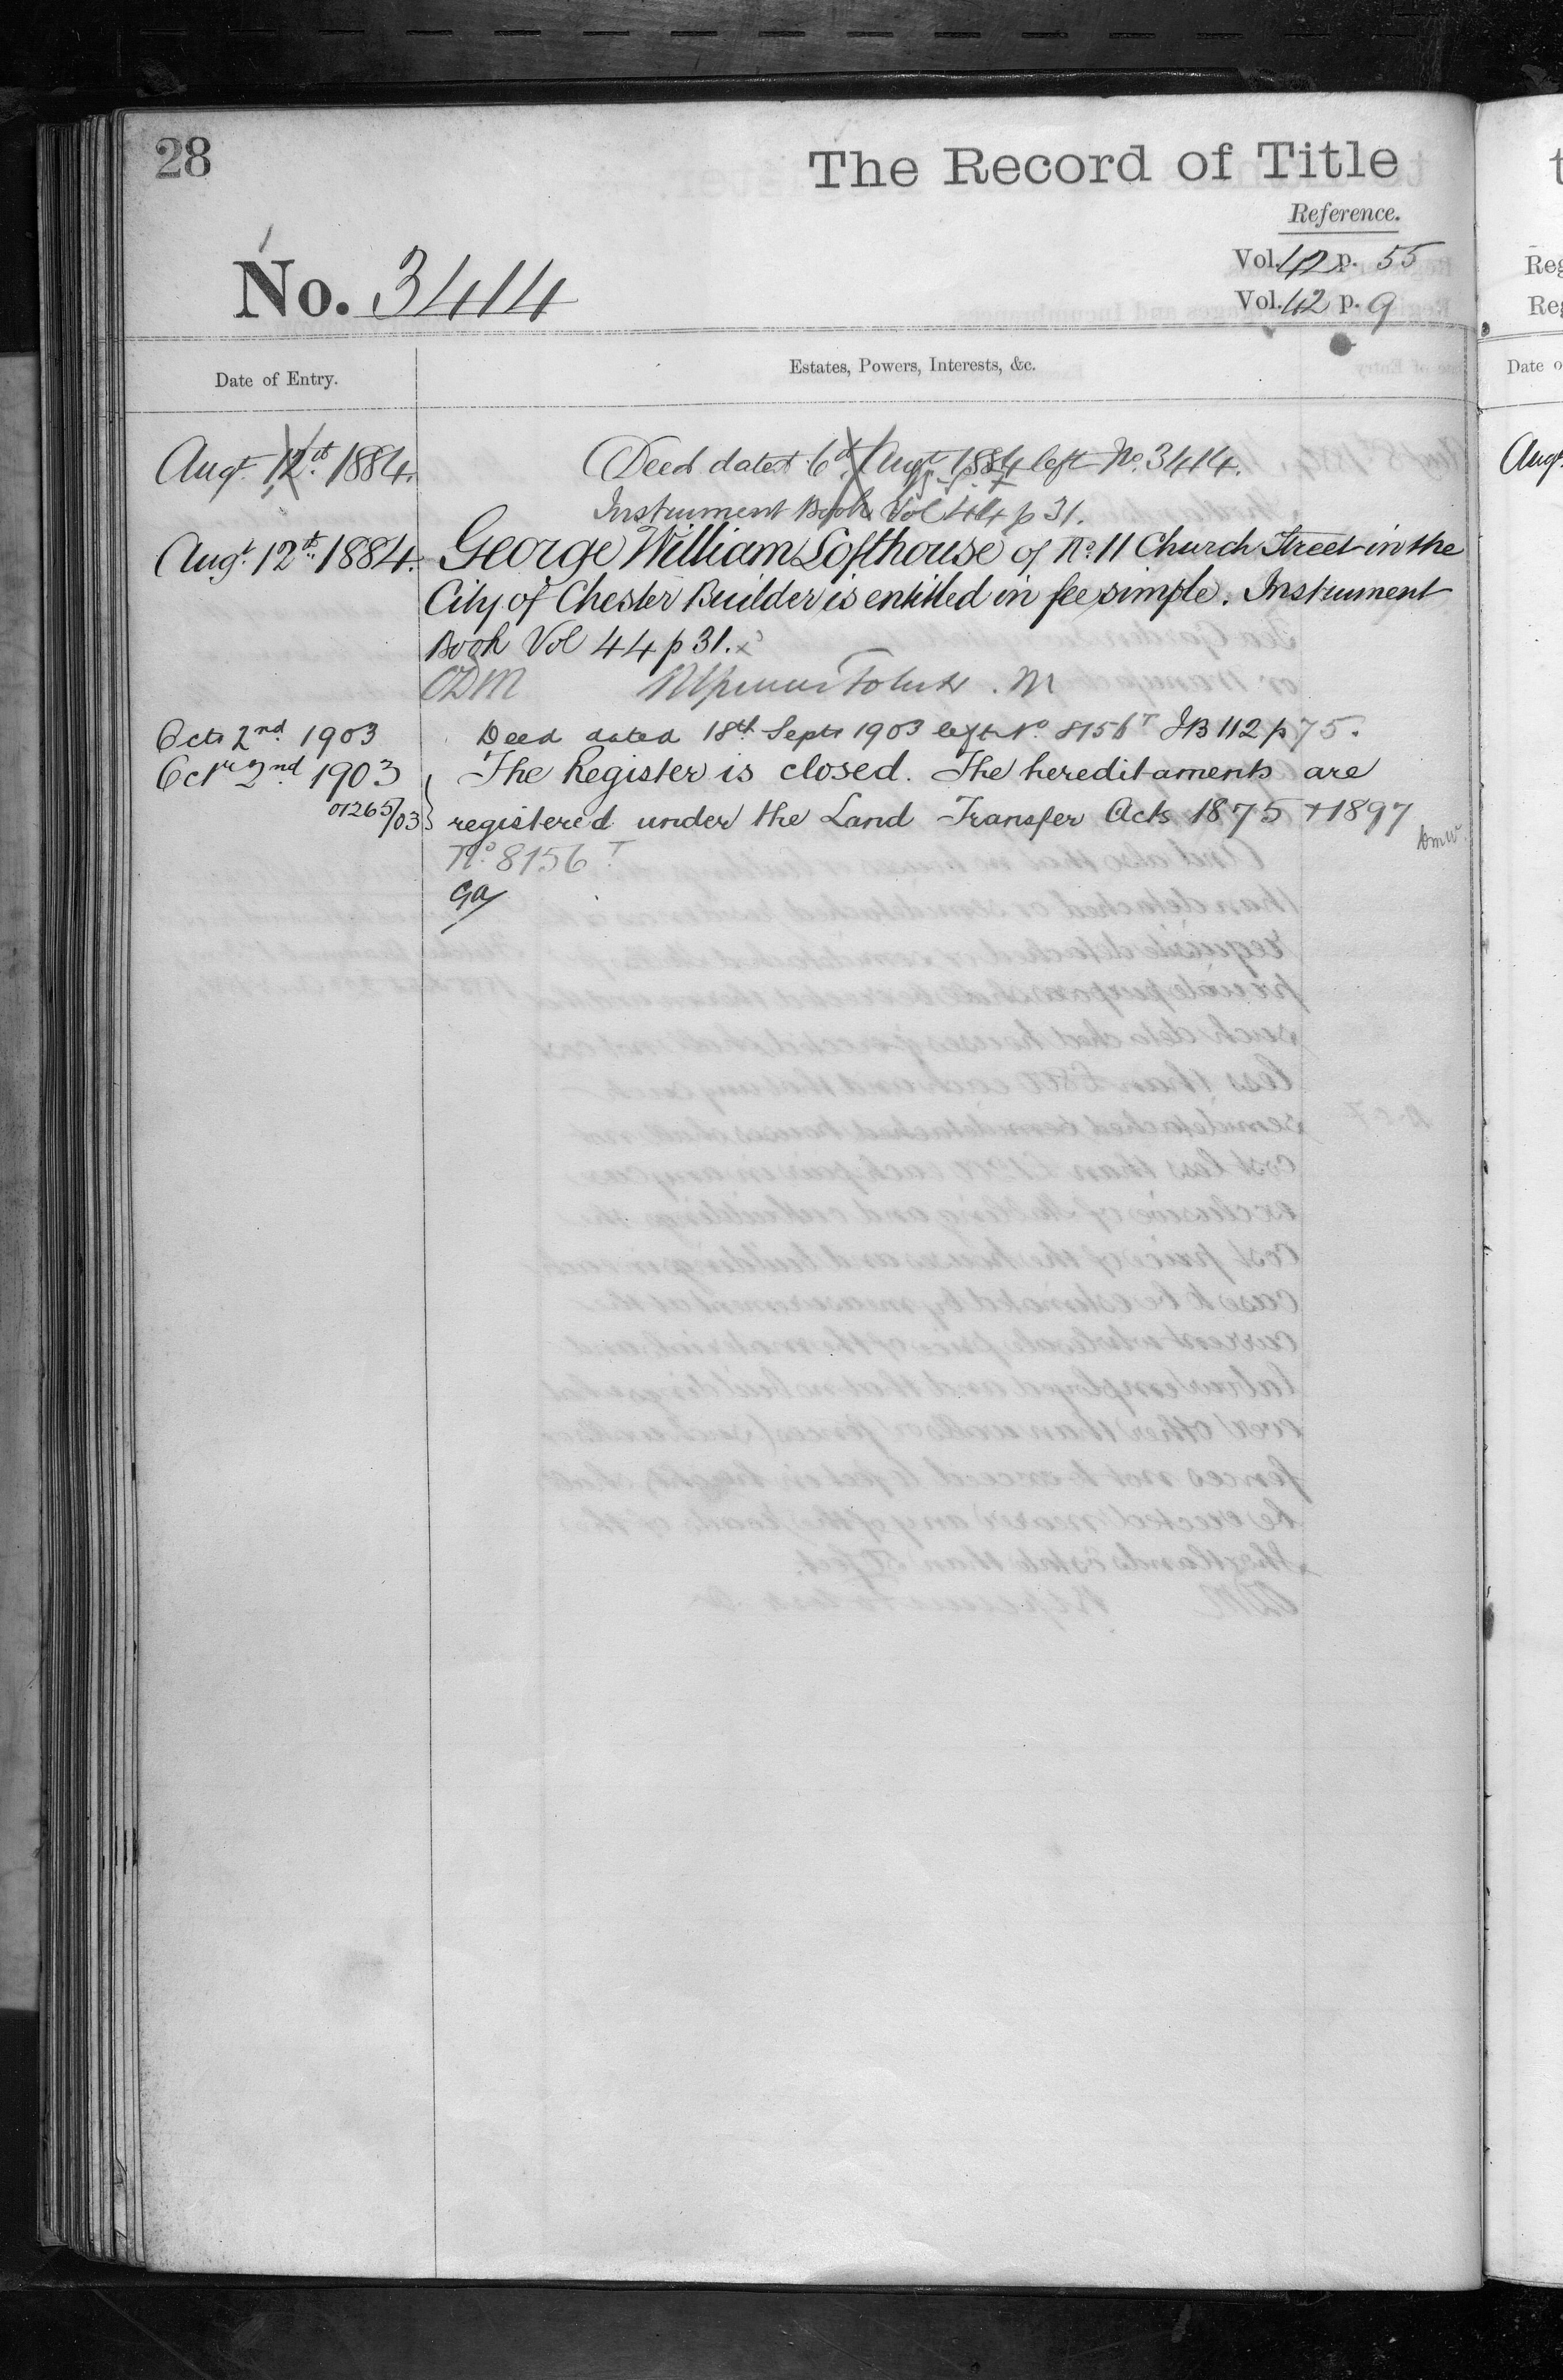 28
The Record of Title
Reference.
No. 3414
Vol. 42 p. 55
Vol. 42 p. 9
Date of Entry.
Estates, Powers, Interests, &c.
Augt. 12th. 1884. Deed dated 6th Augt. 1884 left No. 3414.
Instrument Book Vol 44 p 31.
Augt. 12th. 1884. George William Lofthouse of No. 11 Church Street in the
City of Chester Builder is entitled in fee simple. Instrument
Book Vol 44 p 31.
ODM
Octr 2nd 1903 Deed dated 18th Septr 1903 left No 8156T IB 112 p 75.
Octr 2nd 1903 The Register is closed. The hereditaments are
01265/03 registered under the Land Transfer Acts 1875 + 1897
No. 8156 T
Ga
Reg
Reg
Date o
Augt